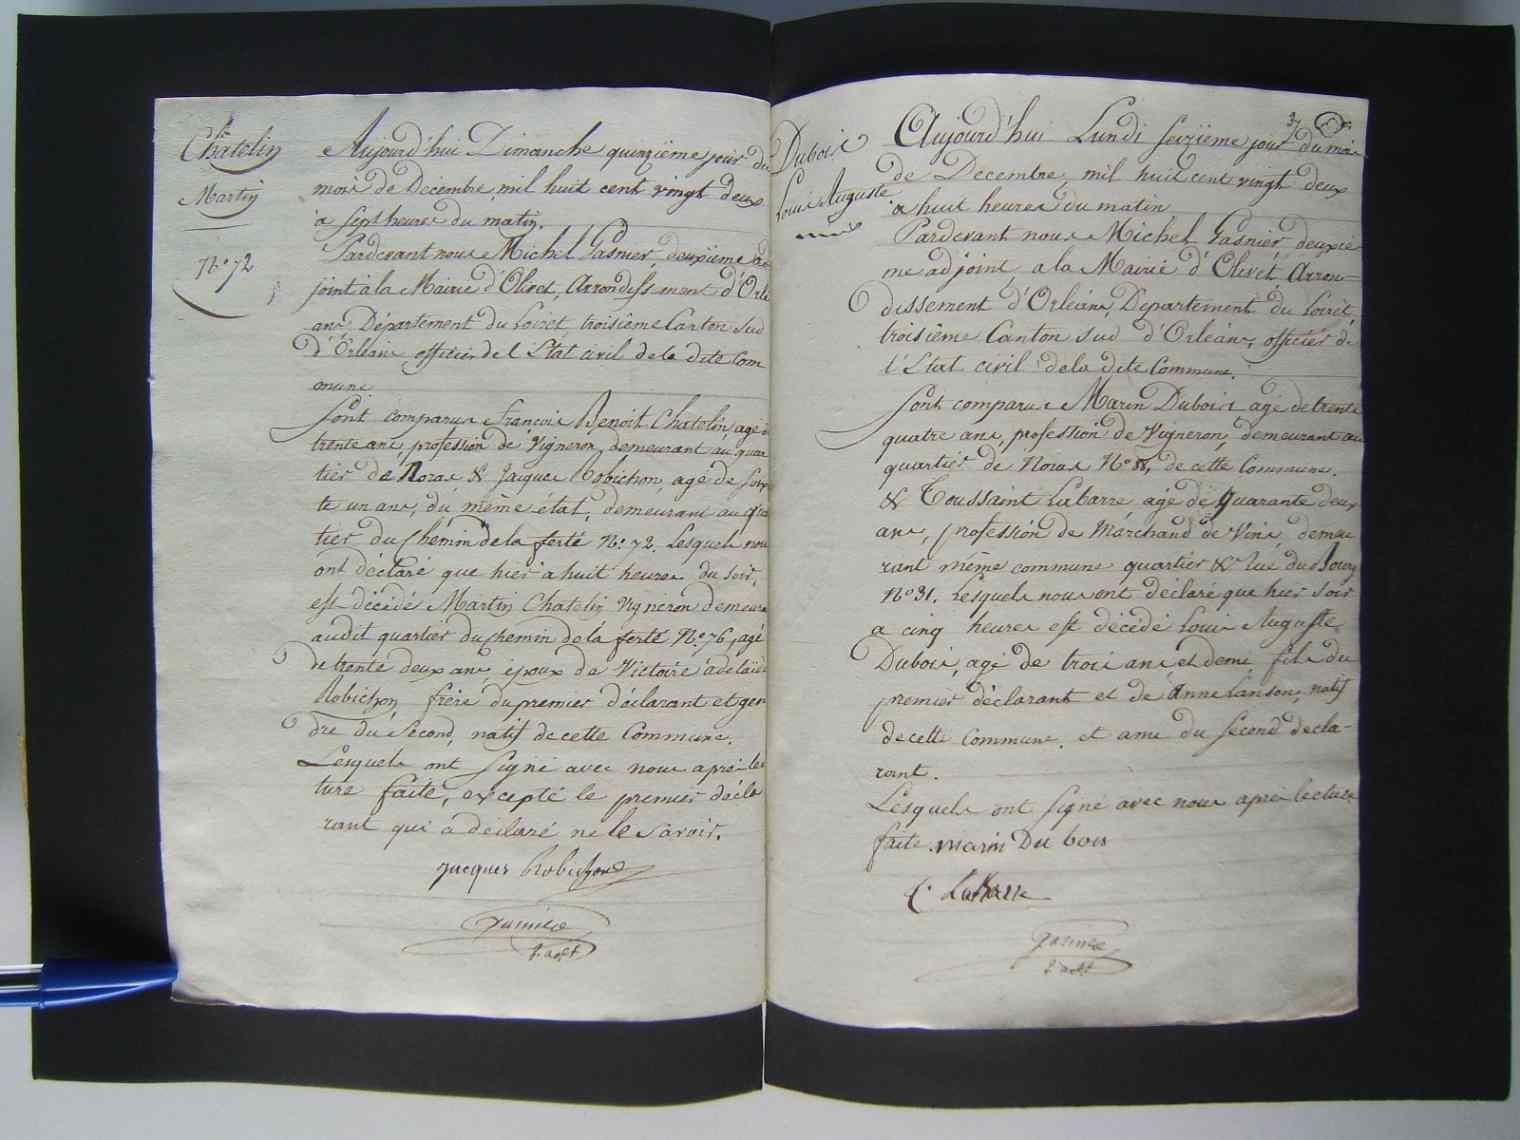 Chatelin
Martin
N.º 72
Aujourd'hui Dimanche quinzième jour du
mois de Décembre mil huit cent vingt deux
à sept heures du matin.
Pardevant nous Michel Gasnier, deuxième ad
joint à la Mairie d'Olivet, Arrondissement d'Orlé
ans Département du Loiret, troisième Canton Sud
d'Orléans officier de l'Etat civil de la dite Com
mune
Sont comparus François Benoit Chatelin, agé de
trente ans, profession de Vigneron, demeurant au quar
tier de Noras & Jacques Robichon, agé de soixan
te un ans, du même état, demeurant au quar
tier du Chemin de la ferté N.º 72. Lesquels nous
ont déclaré que hier à huit heures du soir,
est décédé Martin Chatelin Vigneron demeura
audit quartier du chemin de la ferté N.º 76, agé
de trente deux ans, époux de Victoire adelaïde
Robichon frère du premier déclarant et gen
dre du Second, natif de cette Commune.
Lesquels ont signé avec nous après lec
ture faite, excepté le premier décla
rant qui a déclaré ne le savoir.
jacques Robichon
Gasnier
2. adjt
37
Dubois
Louis Auguste
Aujourd'hui Lundi seizième jour du mois
de Decembre, mil huit cent vingt deux
à huit heures du matin
Pardevant nous Michel Gasnier, deuxiè
me adjoint, a la Mairie d'Olivet, Arron=
dissement d'Orléans, Département du Loiret,
troisième Canton Sud d'Orléans, officier de
l'Etat civil de la dite Commune.
Sont comparus Marin Dubois agé de trente
quatre ans, profession de Vigneron, demeurant au
quartier de Noras N.º de cette Commune.
& Toussaint Labarre agé de quarante deux
ans, profession de Marchand de Vins, demeu
rant même commune quartier & rue du Bourg
N.º 31. Lesquels nous ont déclaré que hier soir
a cinq heures est décédé Louis Auguste
Dubois, agé de trois ans et demi, fils du
premier déclarant et de Anne Lanson, natif
de cette Commune. et ami du second décla-
rant.
Lesquels ont signé avec nous après lecture
faite. marin Du bois
Labarre
Gasnier
2. adjt